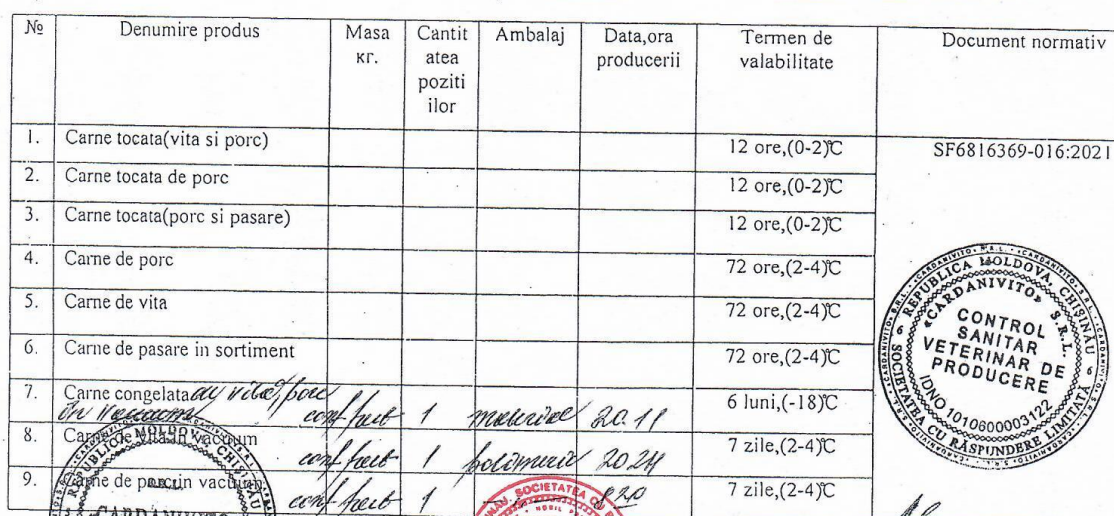 № Denumire produs Masa кг. Cantit atea poziti ilor Ambalaj Data,ora producerii Termen de valabilitate Document normativ
1. Carne tocata(vita si porc) 12 ore,(0-2)℃ SF6816369-016:2021
2. Carne tocata de porc 12 ore,(0-2)℃
3. Carne tocata(porc si pasare) 12 ore,(0-2)℃
4. Carne de porc 72 ore,(2-4)℃
5. Carne de vita 72 ore,(2-4)℃
6. Carne de pasare in sortiment 72 ore,(2-4)℃
7. Carne congelata de vita/porc 6 luni,(-18)℃
in vacuum conf fact 1 material 20.11
8. Carne de vita in vacuum conf fact 1 polimeric 2024 7 zile,(2-4)℃
9. Carne de porc in vacuum conf fact 1 8 20 7 zile,(2-4)℃
REPUBLICA MOLDOVA, CHIȘINĂU
«CARDANIVITO» S.R.L.
CONTROL
SANITAR
VETERINAR DE
PRODUCERE
IDNO 1010600003122
SOCIETATEA CU RĂSPUNDERE LIMITATĂ
REPUBLICA MOLDOVA, CHIȘINĂU
CARDANIVITO
SOCIETATEA CU